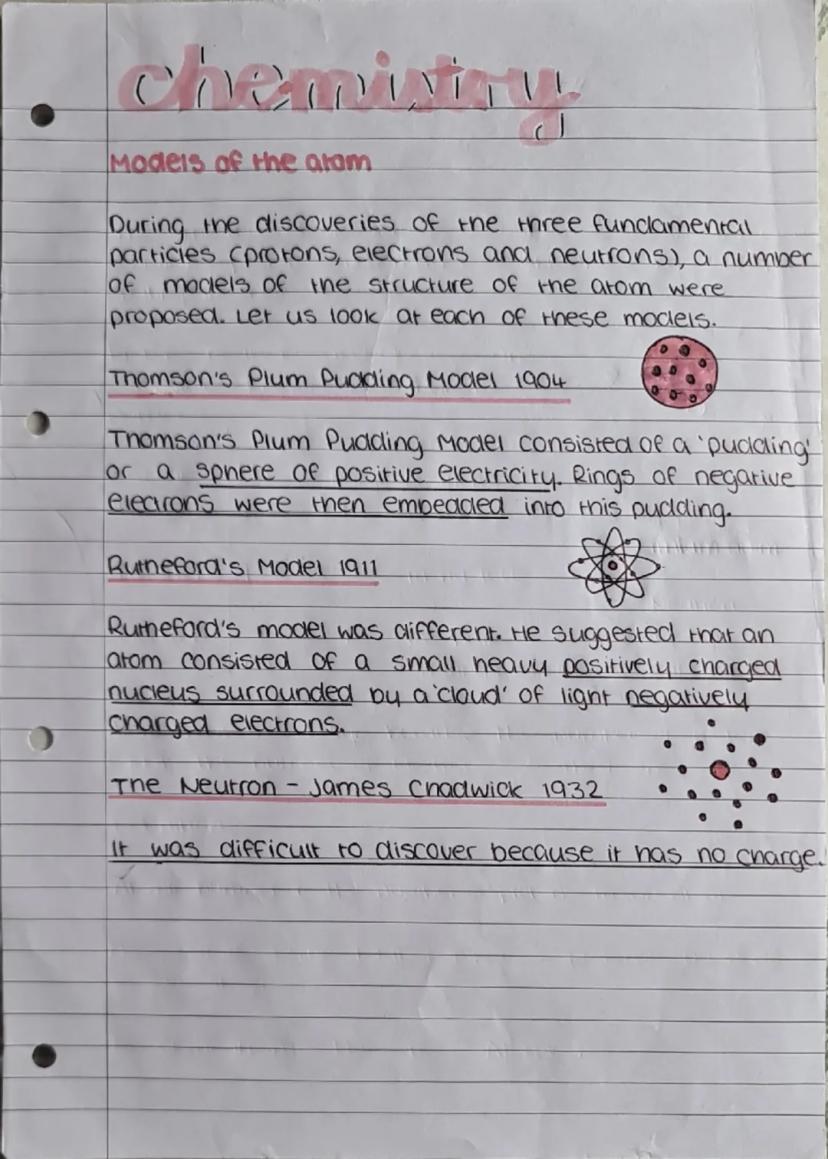 chemistry
Models of the atom
During the discoveries of the three fundamental
particles (protons, electrons and neutrons), a number
of models of the structure of the atom were
proposed. Let us look at each of these models.
Thomson's Plum Pudding Model 1904
Thomson's Plum Pudding Model consisted of a 'pudding'
or a sphere of positive electricity. Rings of negative
electrons were then embedded into this pudding.
Rutheford's Model 1911
Rutheford's model was different. He suggested that an
atom consisted of a small heavy positively charged
nucleus surrounded by a 'cloud' of light negatively
charged electrons.
The Neutron - James Chadwick 1932
It was difficult to discover because it has no charge.